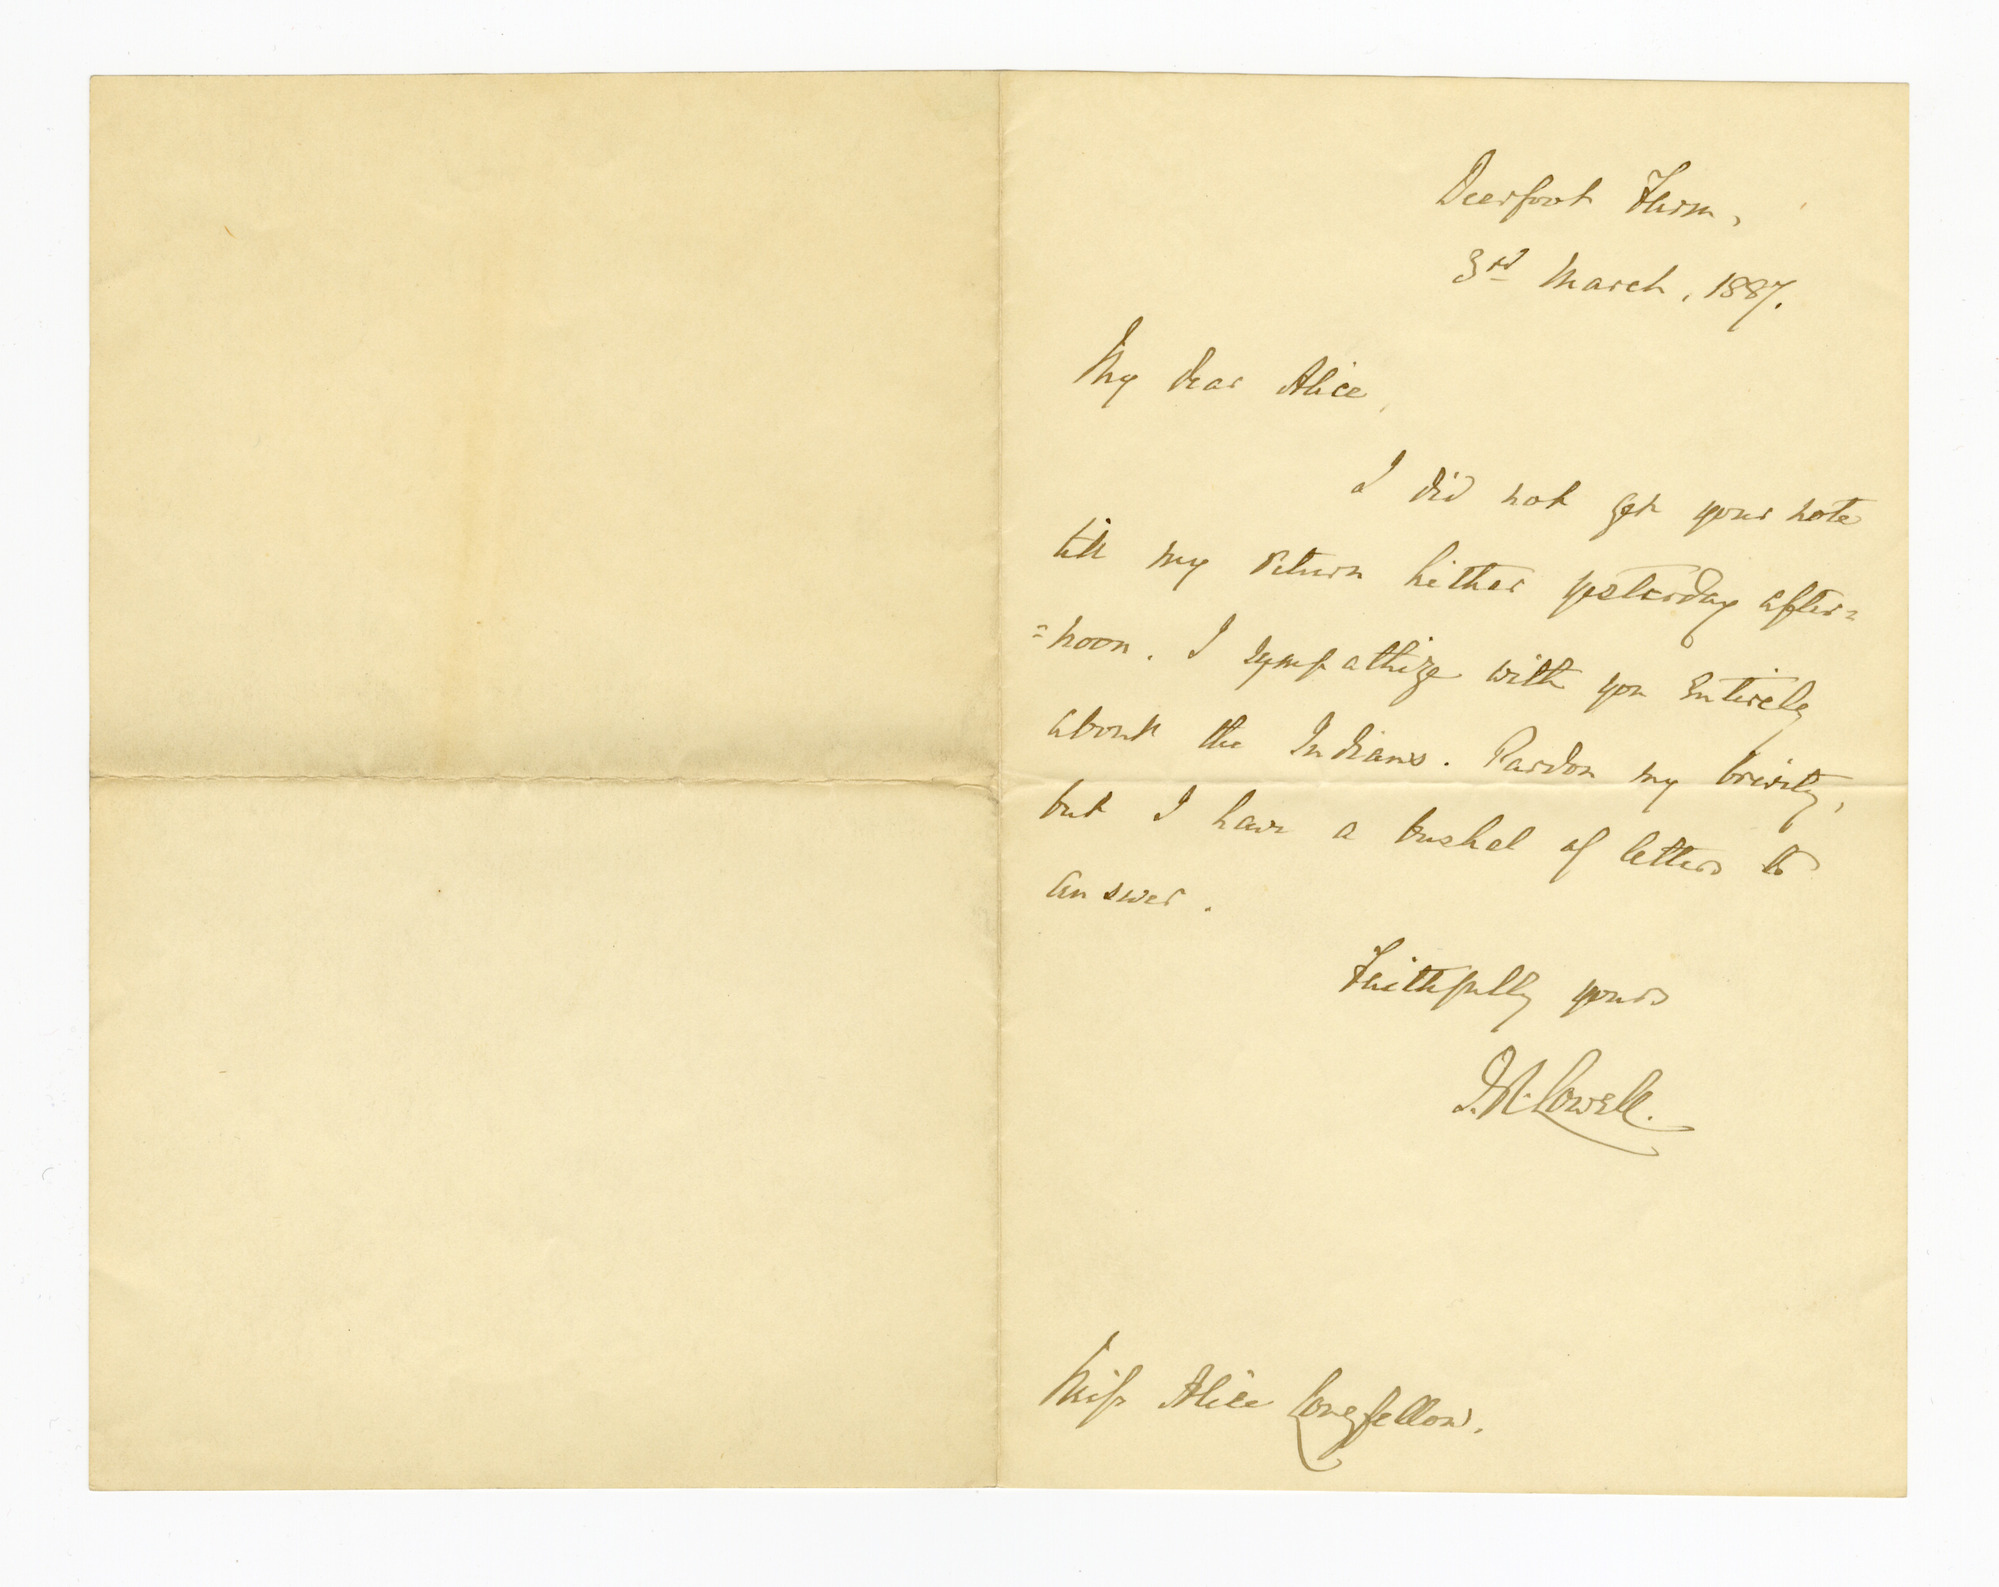 Deerfoot Farm,
3rd March, 1887.
My dear Alice,
I did not get your note
till my return hither yesterday after=
=noon. I sympathize with you entirely
about the Indians. Pardon my brevity,
but I have a bushel of letters to
answer.
Faithfully yours
J. R. Lowell.
Miss Alice Longfellow.